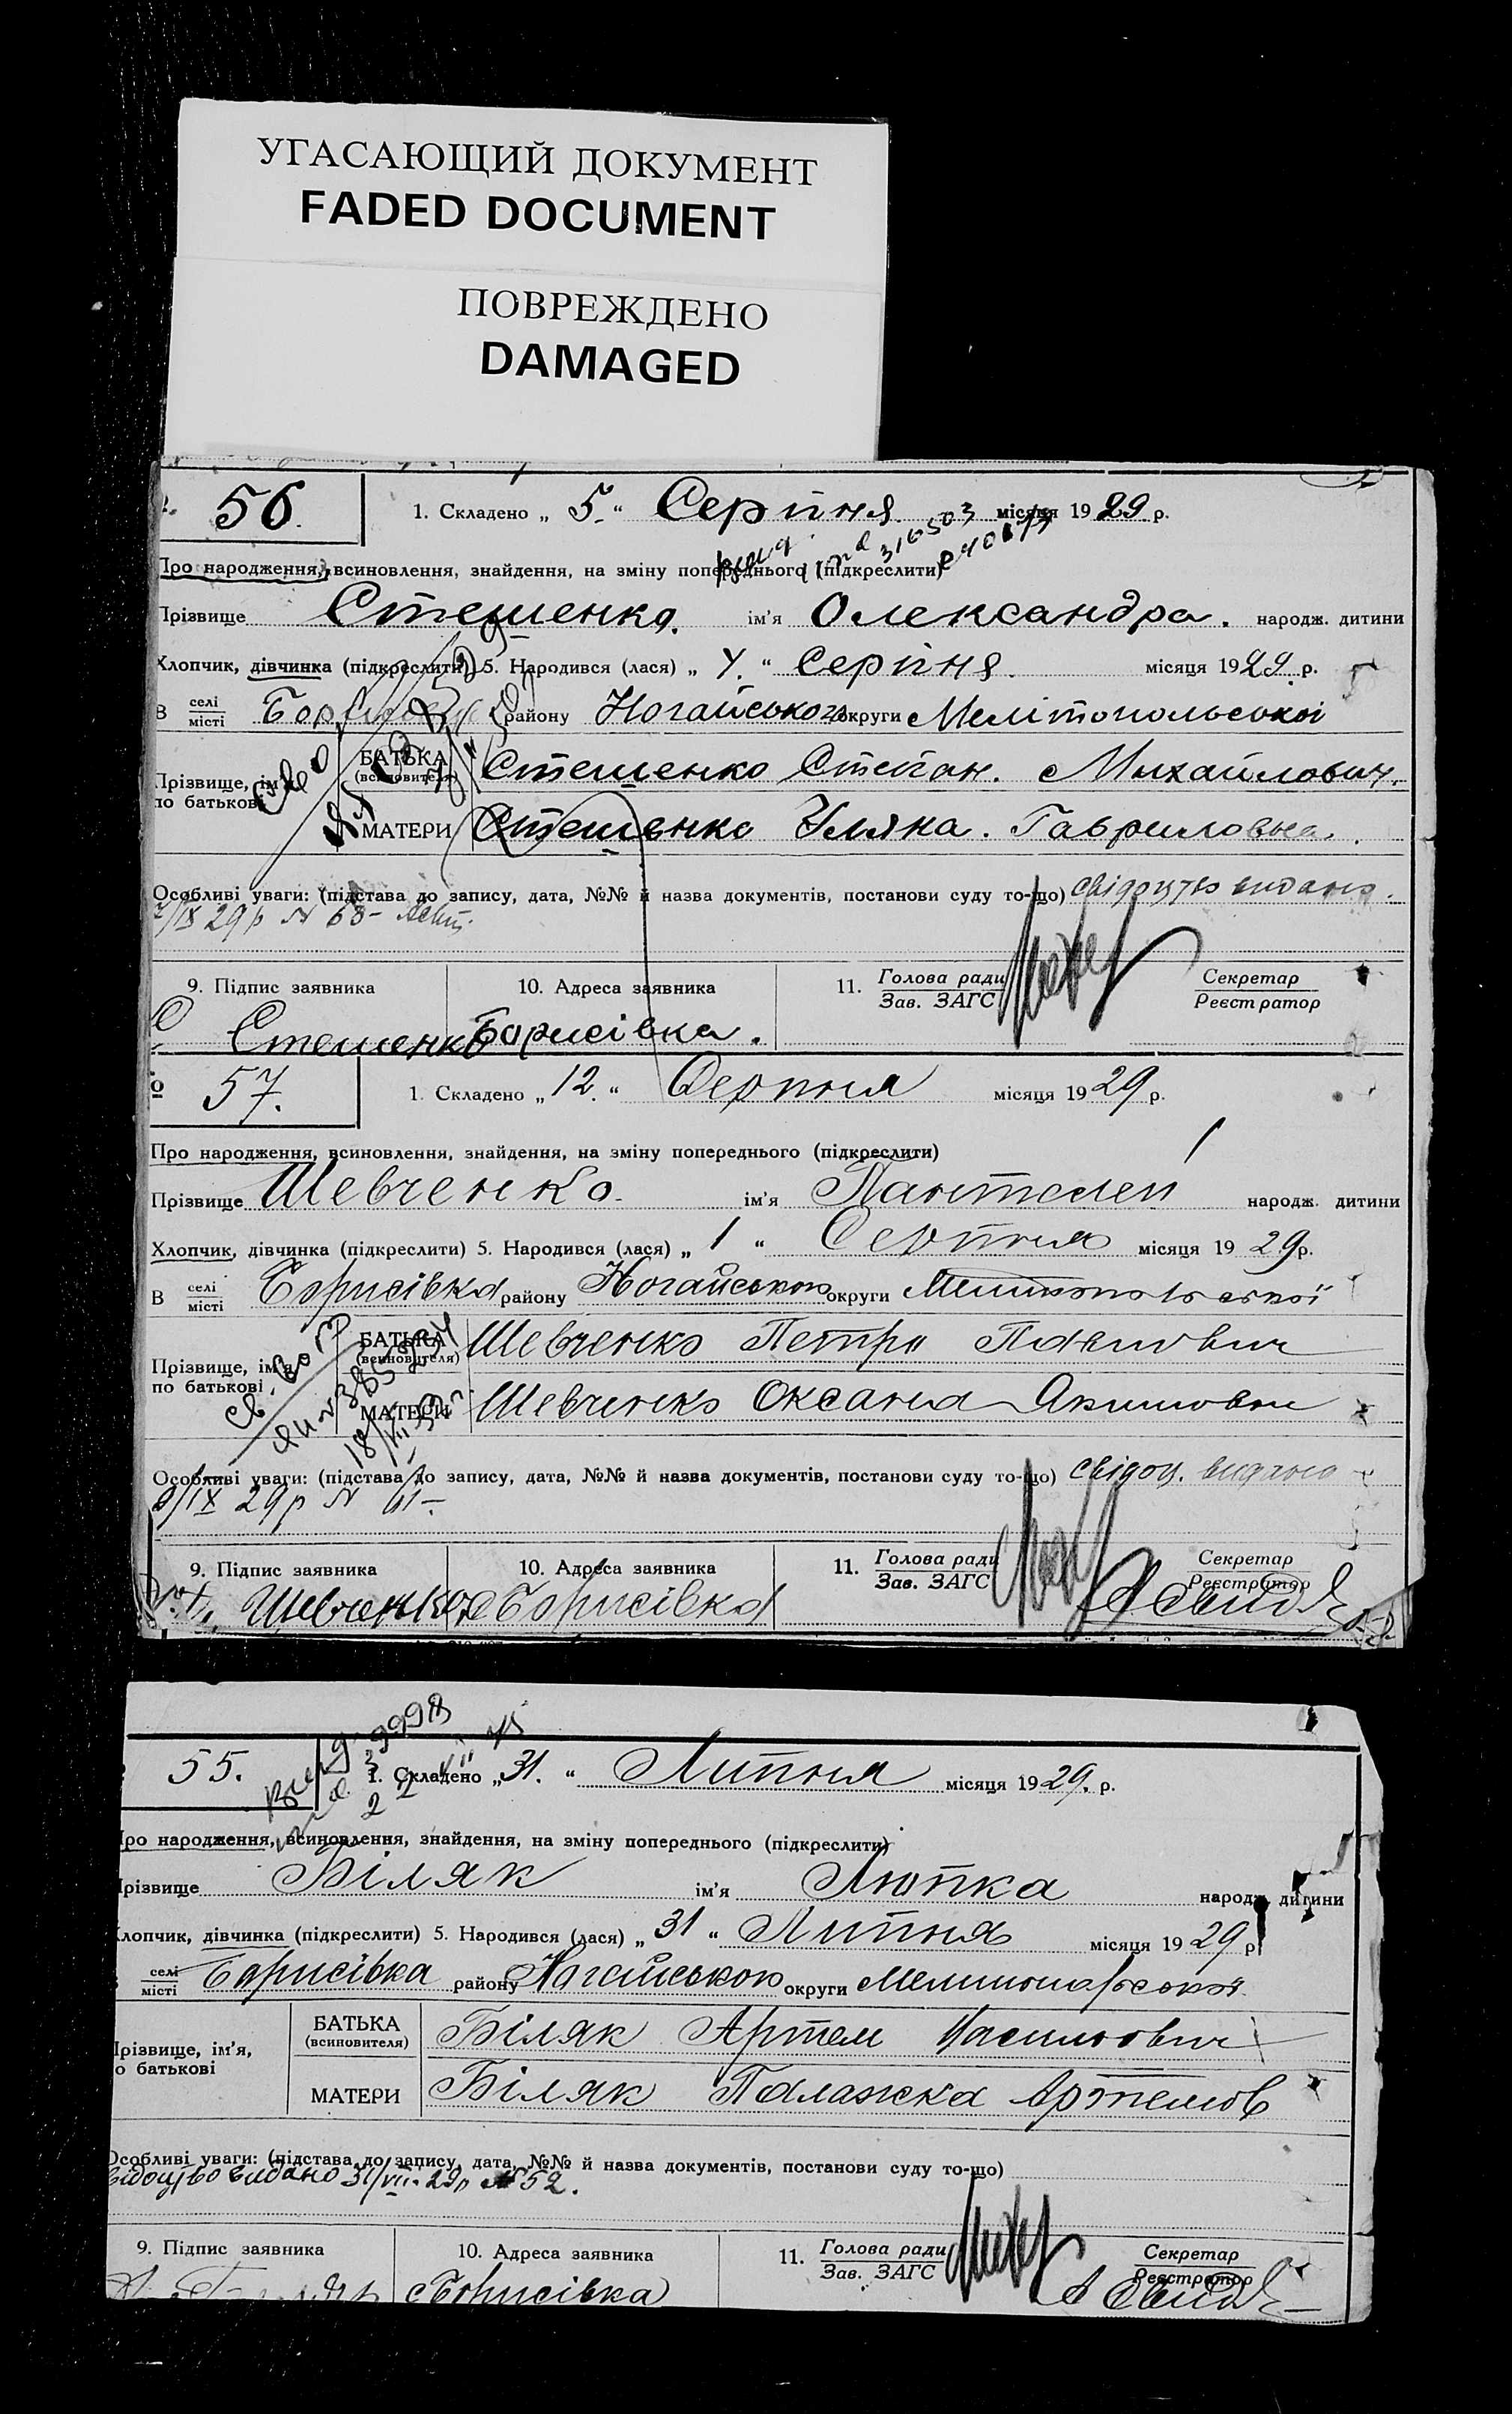 УГАСАЮЩИЙ ДОКУМЕНТ
FADED DOCUMENT
ПОВРЕЖДЕНО
DAMAGED
56. 1. Складено „ 5. “ Серпня місяця 19 29. р.
Про народження, всиновлення, знайдення, на зміну попереднього (підкреслити)
Прізвище Стешенко. ім'я Олександра. народж. дитини
Хлопчик, дівчинка (підкреслити) 5. Народився (лася) „ 4. “ Серпня. місяця 19 29. р.
В селі місті району Ногайського округи Мелітопольської
Прізвище, ім'я по батькові БАТЬКА (всиновителя) Стешенко Степан. Михайлович.
МАТЕРИ Стешенко Уляна. Гавриловна.
Особливі уваги: (підстава до запису, дата, №№ й назва документів, постанови суду то-що) свідоцтво видано.
7/IX 29 р N 63-
9. Підпис заявника 10. Адреса заявника 11. Голова ради Зав. ЗАГС Секретар Реєстратор
Стешенко Борисівка.
57. 1. Складено „ 12. “ Серпня місяця 19 29 р.
Про народження, всиновлення, знайдення, на зміну попереднього (підкреслити)
Прізвище Шевченко. ім'я Пантелей народж. дитини
Хлопчик, дівчинка (підкреслити) 5. Народився (лася) „ 1 “ Серпня місяця 19 29 р.
В селі місті Борисівка району Ногайською округи
Прізвище, ім'я по батькові БАТЬКА (всиновителя) Шевченко Петро Павлович
МАТЕРИ Шевченко Оксана Якимовна
Особливі уваги: (підстава до запису, дата, №№ й назва документів, постанови суду то-що) свідоц. видано
/IX 29 р N 61-
9. Підпис заявника 10. Адреса заявника 11. Голова ради Зав. ЗАГС Секретар Реєстратор
Шевченко Борисівка
55. 1. Складено „ 31. “ Липня місяця 19 29. р.
Про народження, всиновлення, знайдення, на зміну попереднього (підкреслити)
Прізвище Біляк ім'я Люпка народж. дитини
Хлопчик, дівчинка (підкреслити) 5. Народився (лася) „ 31 “ Липня місяця 19 29 р.
селі місті Борисівка району Ногайською округи
Прізвище, ім'я, по батькові БАТЬКА (всиновителя) Біляк Артем Василович
МАТЕРИ Біляк Палажка Артемов
Особливі уваги: (підстава до запису, дата, №№ й назва документів, постанови суду то-що)
свідоцтво видано 31/VII 29 р № 52.
9. Підпис заявника 10. Адреса заявника 11. Голова ради Зав. ЗАГС Секретар Реєстратор
Борисівка